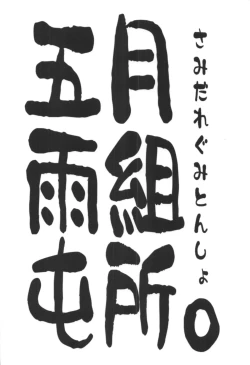 五月
雨組
屯所。
さみだれぐみとんしょ